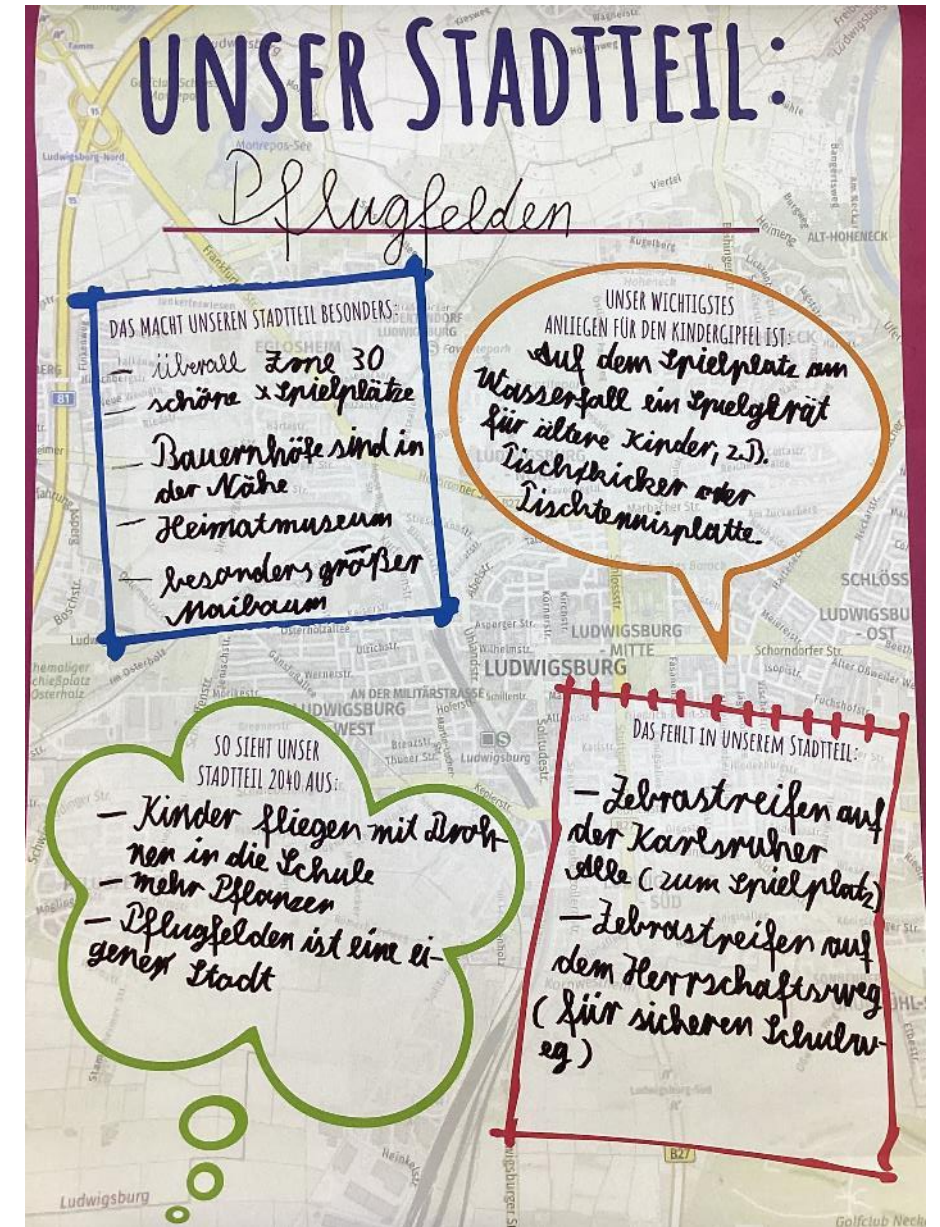 UNSER STADTTEIL:
Pflugfelden
DAS MACHT UNSEREN STADTTEIL BESONDERS:
- überall Zone 30
- schöne x Spielplätze
- Bauernhöfe sind in
der Nähe
- Heimatmuseum
- besonders größer
Maibaum
UNSER WICHTIGSTES
ANLIEGEN FÜR DEN KINDERGIPFEL IST:
Auf dem Spielplatz am
Wasserfall ein Spielgerät
für ältere Kinder, z.B.
Tischkicker oder
Tischtennisplatte.
SO SIEHT UNSER
STADTTEIL 2040 AUS:
- Kinder fliegen mit Droh-
nen in die Schule
- mehr Pflanzen
- Pflugfelden ist eine ei-
gene Stadt
DAS FEHLT IN UNSEREM STADTTEIL:
- Zebrastreifen auf
der Karlsruher
Alle (zum Spielplatz)
- Zebrastreifen auf
dem Herrschaftsweg
(für sicheren Schulw-
eg)
Monrepos-See
Ludwigsburg-Nord
Viertel
Kugelberg
ALT-HOHENECK
EGLOSHEIM
81
Boschstr.
Asperger Str.
Wilhelmstr.
LUDWIGSBURG
- MITTE
LUDWIGSBURG
SCHLÖSS
LUDWIGSBU
- OST
Schorndorfer Str.
Osterholzallee
Ulrichstr.
Wernerstr.
AN DER MILITÄRSTRASSE
LUDWIGSBURG
WEST
Solitudestr.
Ludwigsburg
SÜD
Ludwigsburg-Süd
B27
Ludwigsburg